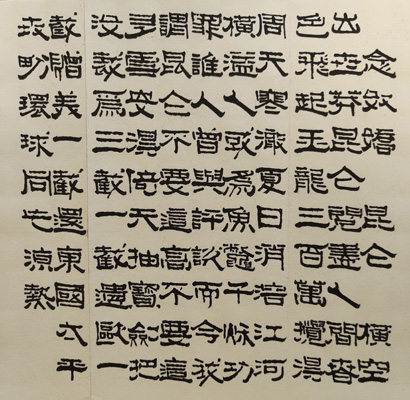 念奴嬌 昆仑 橫空
出世莽昆仑閱盡人間春
色飛起玉龍三百萬攪得
周天寒徹夏日消溶江河
橫溢人或為魚鱉千秋功
罪誰人曾與評說而今我
謂昆仑不要這高不要這
多雪安得倚天抽寶劍把
汝裁為三截一截遺歐一
截贈美一截還東國太平
世界環球同此涼熱